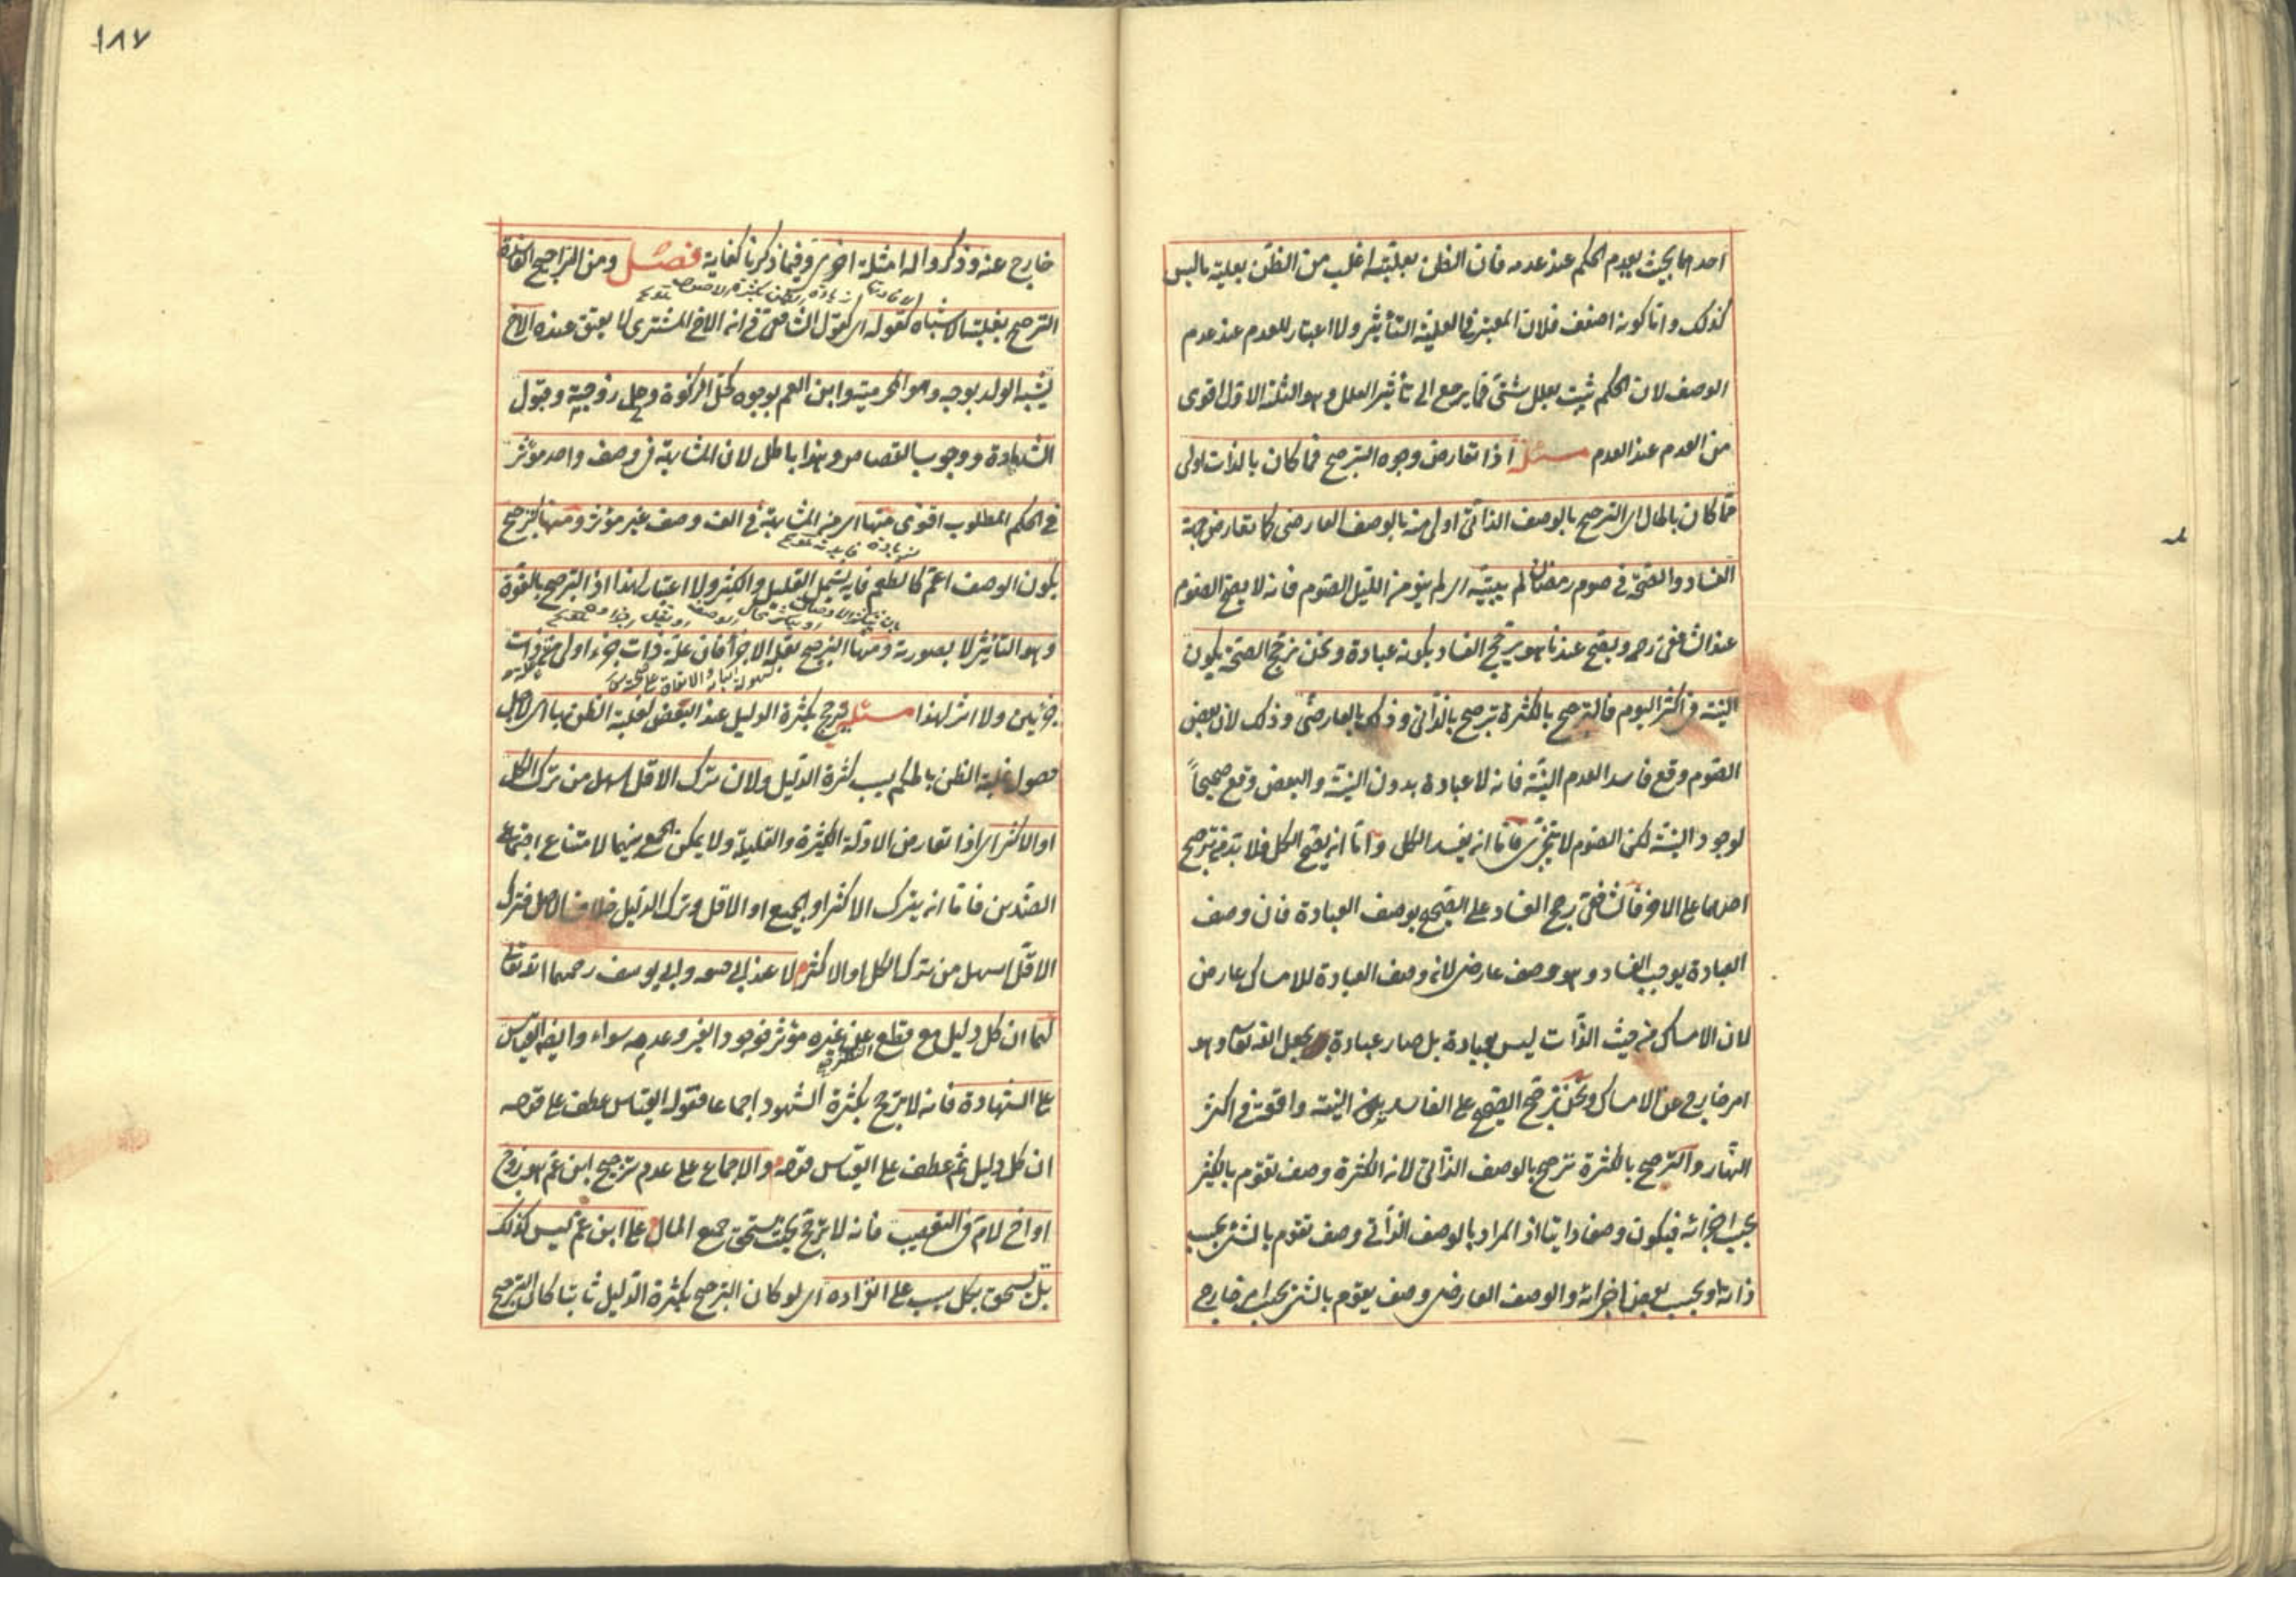 احدهما بحيث يعدم الحكم عند عدمه فان الظن بعليته اغلب من الظن بعلية ما ليس
كذلك واما كونه اضعف فلان المعتبر في العلية التأثير ولا اعتبار للعدم عند عدم
الوصف لان الحكم ثبت بعلل شتى فما يرجع الى تأثير العلل وهو الثلثة الاول اقوى
من العدم عند العدم مسئلة اذا تعارض وجوه الترجيح فما كان بالذات اولى
مما كان بالحال اى الترجيح بالوصف الذاتى اولى منه بالوصف العارضى كما تعارض جهة
الفساد والصحة في صوم رمضان لم يبيته اى لم ينو من الليل الصوم فانه لا يصح الصوم
عند الشافعى رحمه ويصح عندنا هو يرجح الفساد بكونه عبادة ونحن نرجح الصحة بكون
النية في اكثر اليوم فالترجيح بالكثرة ترجيح بالذاتى وذلك بالعارضى وذلك لان بعض
الصوم وقع فاسدا لعدم النية فانه لا عبادة بدون النية والبعض وقع صحيحاً
لوجود النية لكن الصوم لا يتجزى فاما ان يفسد الكل واما ان يصح الكل فلا بد من ترجيح
احدهما على الاخر فالشافعى رجح الفساد على الصحة بوصف العبادة فان وصف
العبادة يوجب الفساد وهو وصف عارضى لان وصف العبادة للامساك عارض
لان الامساك من حيث الذات ليس بعبادة بل صار عبادة بجعل الله تعالى وهو
امر خارج عن الامساك ونحن نرجح الصحيح على الفاسد بكون النية واقعة في اكثر
النهار والترجيح بالكثرة ترجيح بالوصف الذاتى لان الكثرة وصف تقوم بالكثير
بحسب اجزائه فيكون وصفا ذاتيا اذ المراد بالوصف الذاتى وصف تقوم بالشئ بحسب
ذاته او بحسب بعض اجزائه والوصف العارضى وصف يقوم بالشئ بحسب امر خارج
١٨٧
خارج عنه وذكروا له امثلة اخرى وفيما ذكرنا كفاية فصل ومن التراجيح الفاسدة
الترجيح بغلبة الاشباه كقوله اى كقول الشافعى في ان الاخ المشترى لا يعتق عنده الاخ
يشبه الولد بوجه وهو المحرمية وابن العم بوجوه كحل الزكوة وحل زوجته وقبول
الشهادة ووجوب القصاص وهذا باطل لان المشابهة في وصف واحد مؤثر
في الحكم المطلوب اقوى منها اى من المشابهة في الف وصف غير مؤثر ومنها الترجيح
بكون الوصف اعم كالطعم فانه يشمل القليل والكثير ولا اعتبار لهذا اذ الترجيح بالقوة
وهو التأثير لا بصورته ومنها الترجيح بقلة الاجزاء فان علة ذات جزء اولى من ذات
جزئين ولا اثر لهذا مسئلة ترجح بكثرة الدليل عند البعض لغلبة الظن بها اى لاجل
حصول غلبة الظن بالحكم بسبب كثرة الدليل ولان ترك الاقل اسهل من ترك الكل
او الاكثر اى اذا تعارض الادلة الكثيرة والقليلة ولا يمكن الجمع بينهما لامتناع اجتماع
الضدين فاما ان يترك الاكثر او الجميع او الاقل وترك الدليل خلاف الاصل فترك
الاقل اسهل من ترك الكل او الاكثر لا عند ابى حنيفة وابى يوسف رحمهما الله تعالى
لهما ان كل دليل مع قطع النظر عن غيره مؤثر فوجود الغير وعدمه سواء وايضا القياس
على الشهادة فانه لا يرجح بكثرة الشهود اجماعا فقوله القياس عطف على قوله
ان كل دليل ثم عطف على القياس قوله والاجماع على عدم ترجيح ابن عم هو زوج
او اخ لام في التعصيب فانه لا يرجح بحيث يستحق جميع المال على ابن عم ليس كذلك
بل يستحق بكل سبب على انفراده اى لو كان الترجيح بكثرة الدليل ثابتا لكان الترجيح